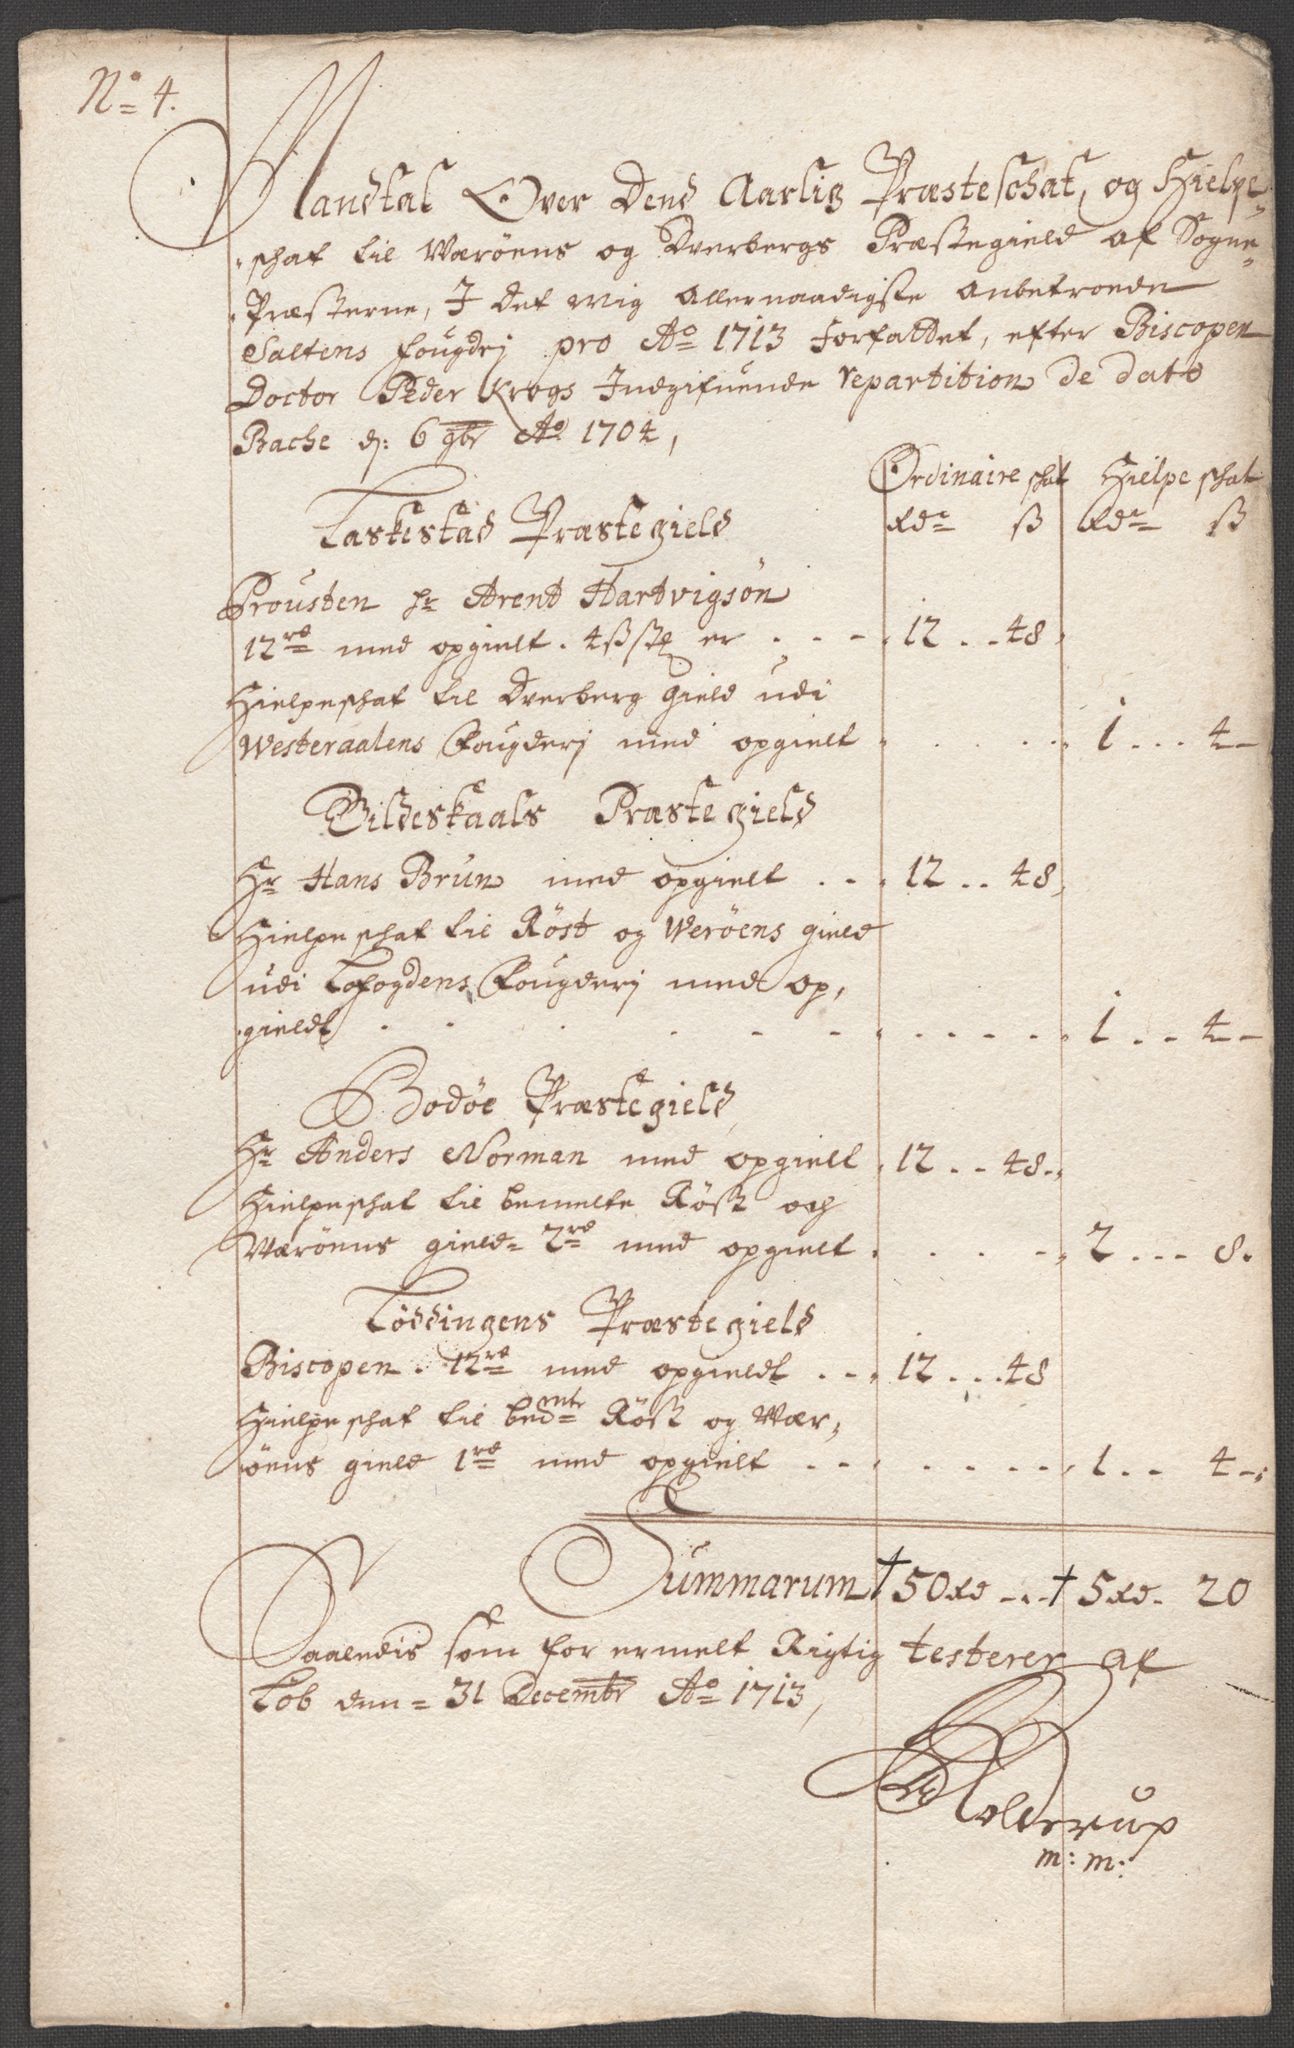 No 4.
Mandtal Over Dend Aarlig Præsteschat, og Hielpe-
schat til Værøens og Dverbergs Præstegield af Sogne-
Præsterne, I det mig Allernaadigste Anbetroede
Saltens fougdrj pro Ao 1713 Forfaldet, efter Biscopen
Doctor Peder Krogs Indgifuende repartition de dato
Bache d: 6 9br Ao 1704,
Ordinaire schat Hielpe schat
Rdr ß Rdr ß
Laskestad Præstegield
Prousten Hr Arent Hartvigsøn
12 rd med opgielt . 4 ß er . . . 12 . . 48,
Hielpeschat til Dverberg Gield udi
Westeraalens Fougderj med opgielt . . . . . 1 . . . 4 -
Gildeskaals Præstegield
Hr Hans Brun med opgielt . . . 12 . . 48,
Hielpe schat til Røst og Werøens gield
udi Lofogdens Fougderj med Op,
gieldt . . . . . . . 1 . . . 4 -
Bodøe Præstegield
Hr Anders Norman med opgielt . 12 . . 48 . ,
Hielpeschat til bemelte Røst och
Værøens gield - 2 rd med opgielt . . . . 2 . . . 8 .
Løddingens Præstegield
Biscopen . 12 rd med opgieldt . . . 12 . . . 48
Hielpe schat til bedmte Røst og Vær,
øens gield 1 rd med opgielt . . . . . . 1 . . 4 - ,
Summarum † 50 Rd . . . † 5 Rd . 20
Saaledis som for ermelt Rigtig testerer af
Løb den = 31 Decembr Ao 1713,
m: m: